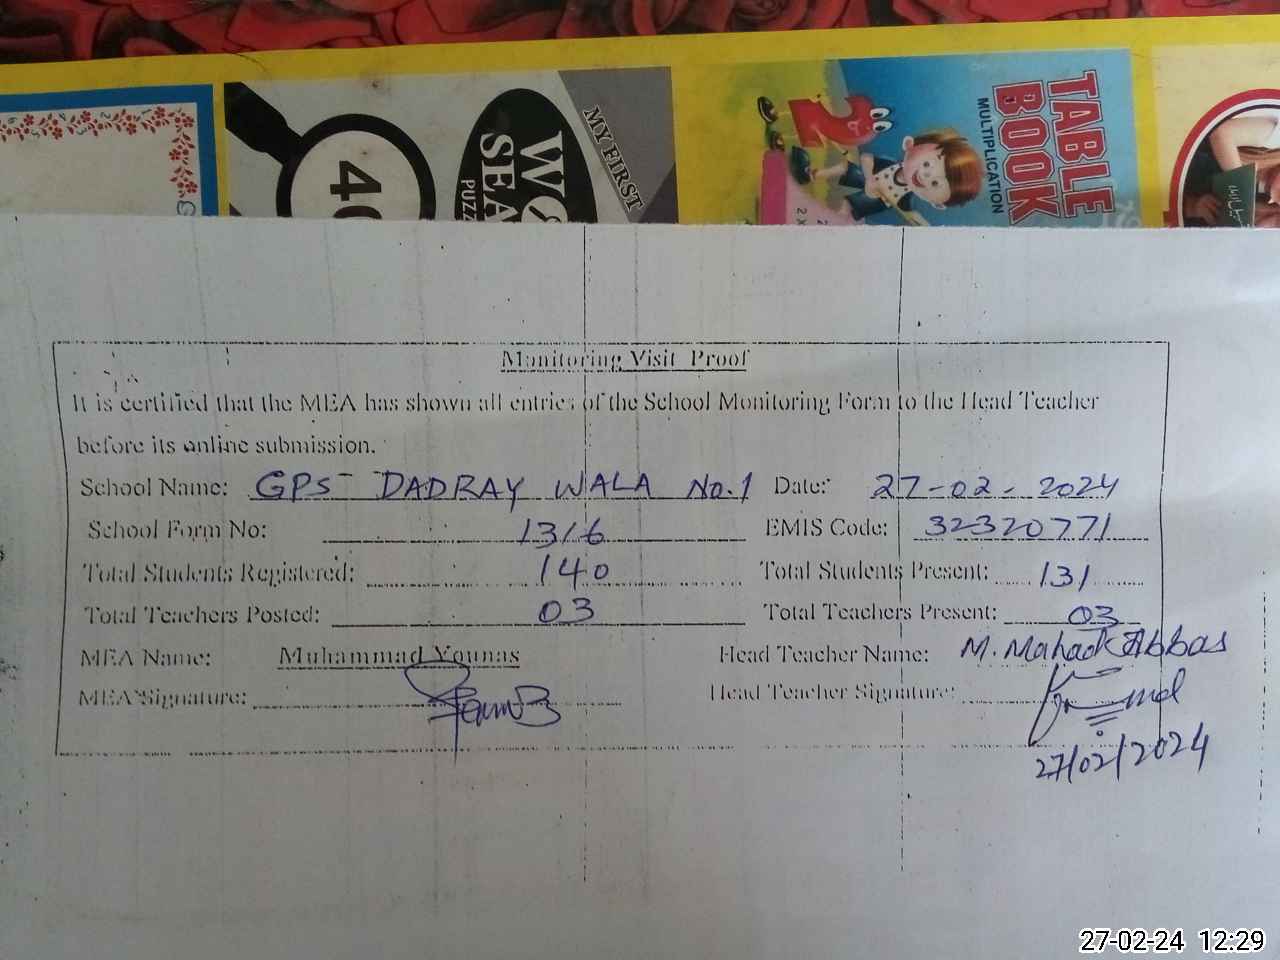 MY FIRST
WO
SEA
PUZZ
40
TABLE
BOOK
MULTIPLICATION
2
2 X
Monitoring Visit Proof
It is certified that the MEA has shown all entries of the School Monitoring Form to the Head Teacher
before its online submission.
School Name: GPS DADRAY WALA No.1 Date: 27-02-2024
School Form No: 1316 EMIS Code: 32320771
Total Students Registered: 140 Total Students Present: 131
Total Teachers Posted: 03 Total Teachers Present: 03
MEA Name: Muhammad Younas Head Teacher Name: M. Mahadk Abbas
MEA Signature: Head Teacher Signature:
27/02/2024
27-02-24 12:29